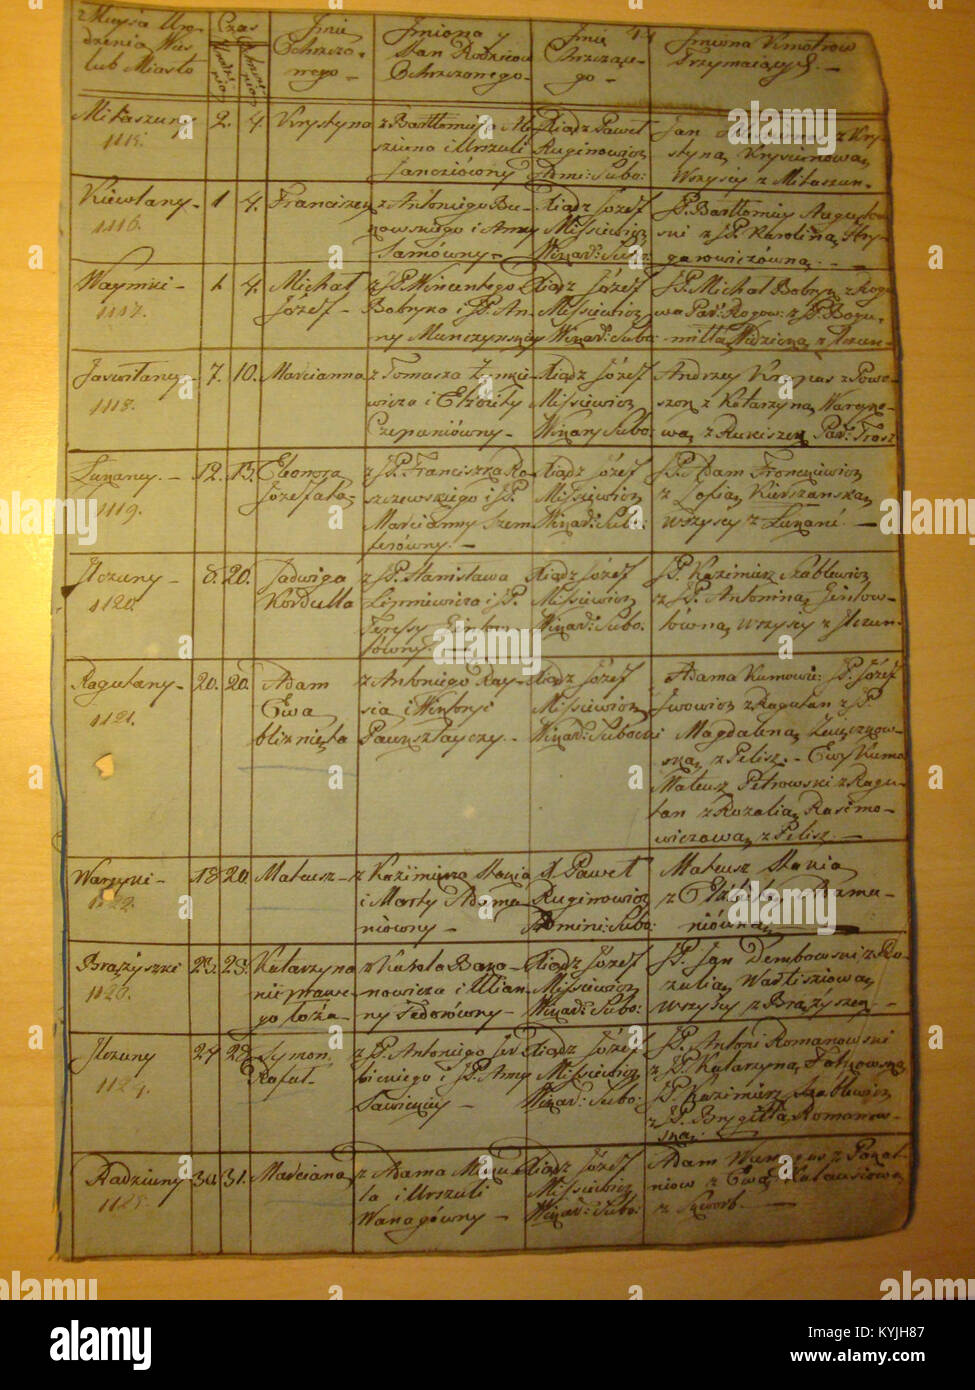 z Mieysca Uro-
dzenia Wieś
lub Miasto
Czas
Imie
Ochrzczo-
nego -
Imiona
Stan Rodziców
Ochrzczonego -
Imie
Chrzczące-
go -
44
Imiona Kmotrów
Trzymaiących. -
Mitaszuny
1115.
2.
4.
Krystyna
z Bartłomieja Mi-
szurna i Urszuli
Janczióowny
Xiądz Paweł
Ruginowicz
Admi: Subo:
Jan
z Kry-
styną Krysienową
Wszyscy z Mitaszun -
Kiewłany -
1116.
1
4.
Franciszek
z Antoniego Bu-
kowskiego i Anny
Samówny -
Xiądz Józef
Missiewicz
Wikar: Subo:
JP. Bartłomiey Augustow-
ski z JP. Karoliną Hry-
garowiczówną. -
Woyniki -
1117.
1.
4.
Michał
Józef -
z JP. Wincentego
Bobryka i JP. An-
ny Munczynskiey
Xiądz Józef
Missiewicz
Wikar: Subo:
JP. Michał Bobryk z Rogo-
wa Par: Rogow: z JP. Bogu-
miłłą z Iczun -
Jawiłtany -
1118.
7.
10.
Marcianna
z Tomasza Zynkie-
wicza i Elżbiety
Czepaniówny -
Xiądz Józef
Missiewicz
Wikary Subo:
Andrzey Krupas z Powo-
szon z Katarzyną Waryno-
wą z Rukiszek Par: Trosz
Łukancy. -
1119.
12.
13.
Eleonora
Józefata
z JP. Franciszka Ro-
szczewskiego i JP.
Marcianny Szem-
terówny. -
Xiądz Józef
Missiewicz
Wikar: Subo:
JP. Adam Fronckiewicz
z Zofią Kierszanską
wszyscy z Łukań. -
Iczuny -
1120.
8.
20.
Jadwiga
Kordulla
z JP. Stanisława
Lipniewicza i JP.
Teressy Gintow-
tówny. -
Xiądz Józef
Missiewicz
Wikar: Subo:
JP. Kazimierz Szablewicz
z JP. Antoniną Gintow-
tówną, wszyscy z Iczun -
Ragulany -
1121.
20.
20.
Adam
Ewa
bliznięta
z Antoniego Ray-
sia i Wiktoryi
Paukszłayczy. -
Xiądz Józef
Missiewicz
Wikar: Subocki
Adama Kumowie: JP. Józef
Jwowicz z Ragulan z JP.
Magdaleną
ską z Pelisz. - Ewy Kumo
Mateusz Petrowski z Ragu-
lan z Rozalią Rasimo-
wiczową z Pelisz. -
Waryki -
1122.
18.
20.
Mateusz -
z Kazimierza Skavia
i Marty Adoma-
niówny -
X. Paweł
Ruginowicz
Admini: Subo:
Mateusz Skavia
z Elżbietą Adzma-
niówną -
Brażyszki
1123.
23.
23.
Katarzyna
nieprawe-
go łoża -
z Karola Bara-
nowicza i Ulian-
ny Fedorówny -
Xiądz Józef
Missiewicz
Wikar: Subo:
JP. Jan Dembowski z Ro-
zalią Wartisziową
wszyscy z Brażyszek -
Iczuny
1124.
27
28.
Symon
Rafał -
z JP. Antoniego Sa-
wickiego i JP. Anny
Sawickiey -
Xiądz Józef
Missiewicz
Wikar: Subo:
JP. Antoni Romanowski
z JP. Katarzyną
JP. Kazimierz Szablewicz
z JP. Brygittą Romanow-
ską. -
Radziuny
1125.
30.
31.
Marciana
z Adama
i Urszuli
Wanagówny -
Xiądz Józef
Missiewicz
Wikar: Subo:
Adam z
z Ewą
z
alamy
Image ID: KYJH87
www.alamy.com